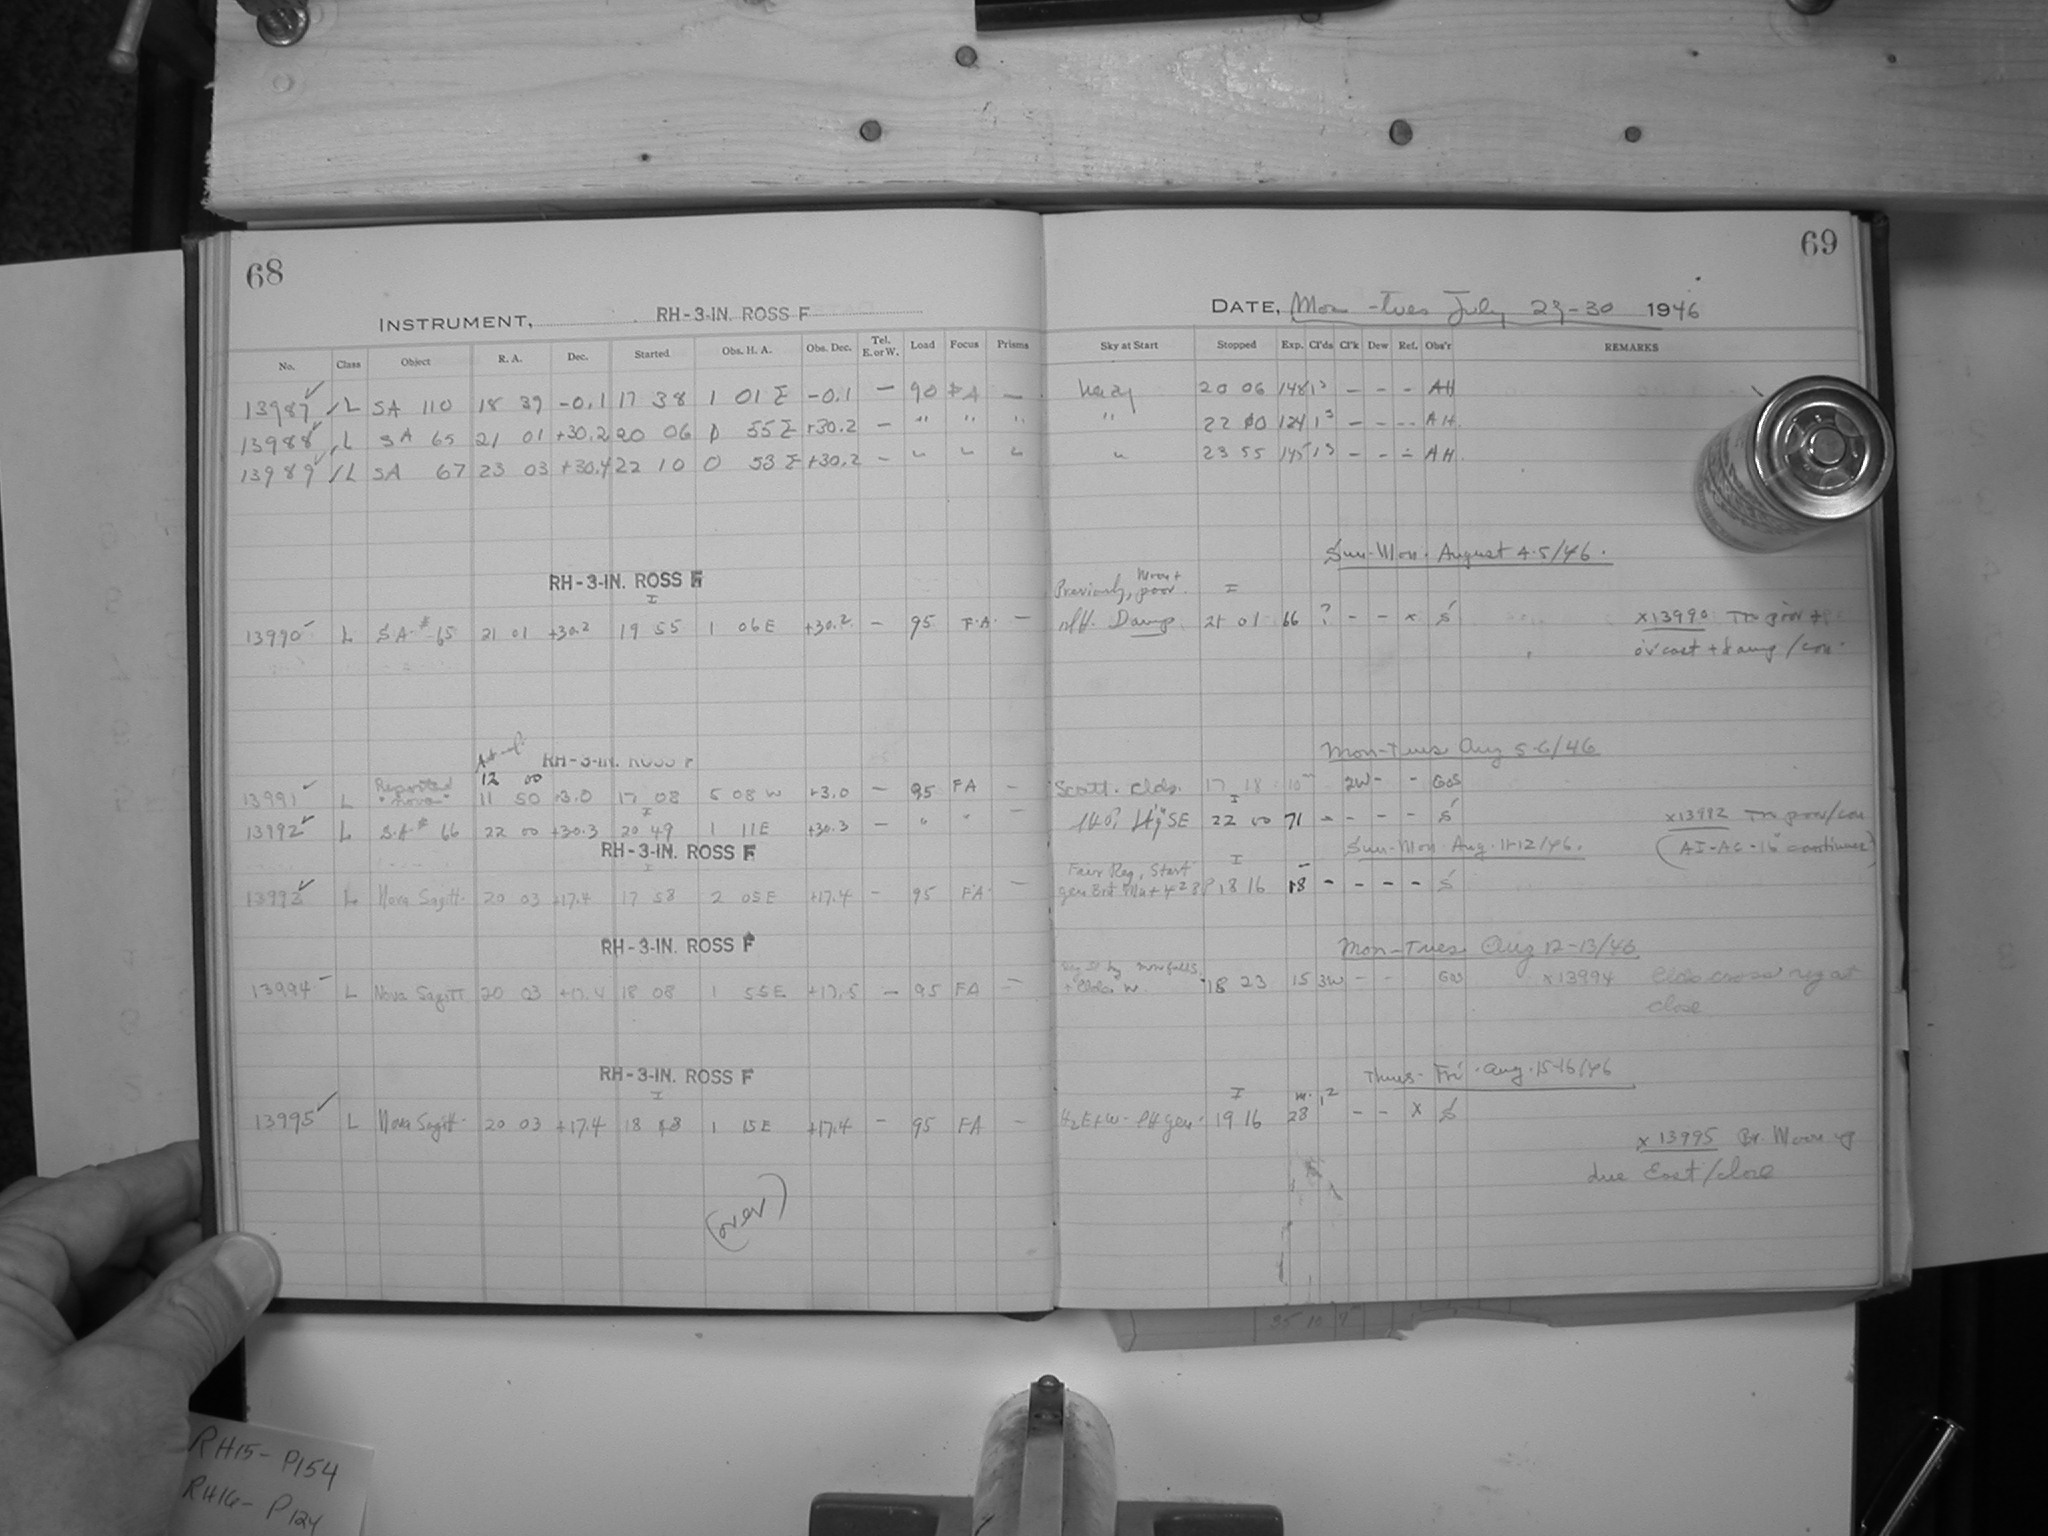 68
69
INSTRUMENT, RH-3-IN. ROSS F
DATE, Mon -Tues July 29-30 1946
No. Class Object R. A. Dec. Started Obs. H. A. Obs. Dec. Tel. E. or W. Load Focus Prisms Sky at Start Stopped Exp. Cl'ds Cl'k Dew Ref. Obs'r REMARKS
13987 L SA 110 18 39 -0.1 17 38 1 01 E -0.1 - 90 FA - Heavy 20 06 148 - - - AH
13988 L SA 65 21 01 +30.2 20 06 0 55 E +30.2 - " " " " 22 10 124 - - -- AH.
13989 L SA 67 23 03 +30.4 22 10 0 53 E +30.2 - " " " " 23 55 - - - AH.
Sun-Mon. August 4-5/46.
RH-3-IN. ROSS F
I
Previously, Moon + poor. I
13990 L S.A.# 65 21 01 +30.2 19 55 1 06 E +30.2 - 95 F.A. - Damp. 21 01 66 ? - - x S x13990
Mon-Tues Aug 5-6/46
RH-3-IN. ROSS F
12 00
Reported
13991 L "Nova" 11 50 +3.0 17 08 5 08 W +3.0 - 95 FA - Scatt. Clds. 17 18 10m 2W - - GoS
I I
13992 L S.A.# 66 22 00 +30.3 20 49 1 11E +30.3 - " " - SE 22 00 71 - - - - S x13992
RH-3-IN. ROSS F
Sun-Mon. Aug. 11-12/46.
I Fair Reg, Start I
13993 L Nova Sagitt. 20 03 +17.4 17 58 2 05E +17.4 - 95 FA - 18 16 18 - - - - S
RH-3-IN. ROSS F
Mon-Tues Aug 12-13/46
13994 L Nova Sagitt 20 03 +17.4 18 08 1 55E +17.5 - 95 FA - + Clds W. 18 23 15 3W - - GoS x13994 Clds cross reg at
close
RH-3-IN. ROSS F
Thurs-Fri. Aug. 15-16/46
I I m. 1 2
13995 L Nova Sagitt. 20 03 +17.4 18 48 1 15E +17.4 - 95 FA - 19 16 28 - - X S
x 13995 Br. Moon up
due East/close
(over)
35 10 7
RH15- P154
RH16- P124